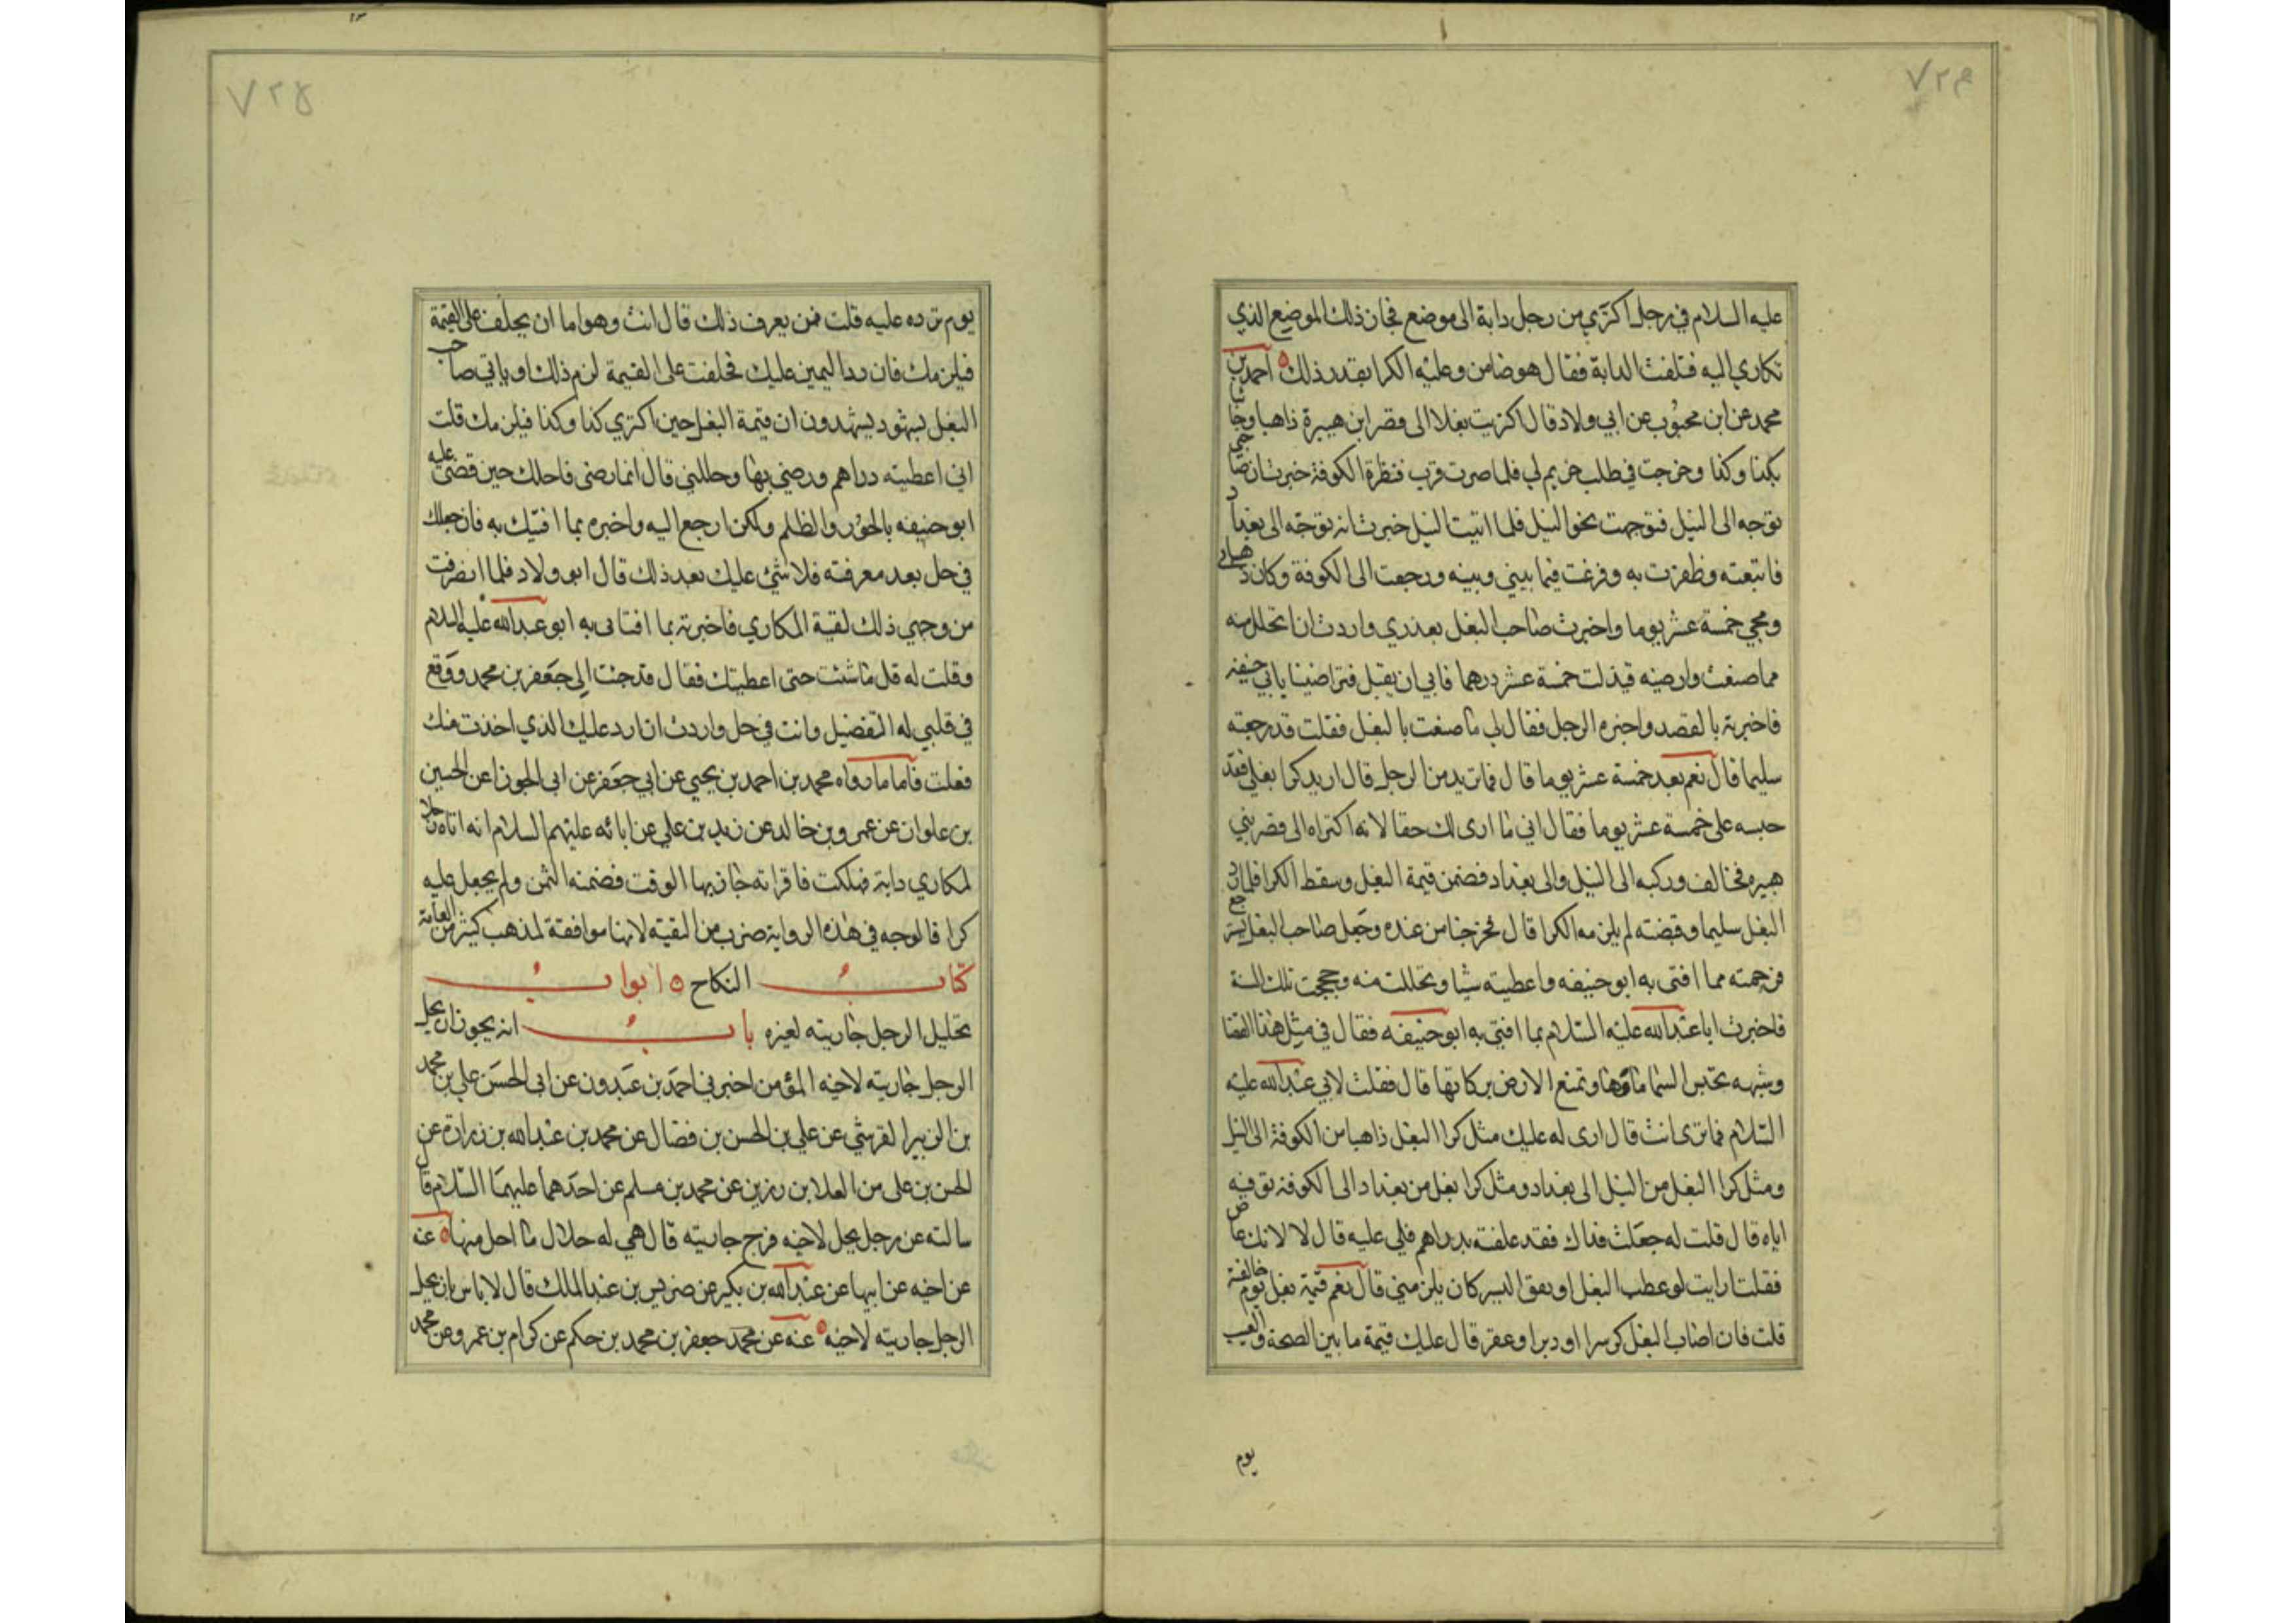 ٧٢٤
عليه السلام في رجل اكتري من رجل دابة الى موضع فجاز ذلك الموضع الذي
تكاري اليه فتلفت الدابة فقال هو ضامن وعليه الكرا بقدر ذلك ٥ احمد بن
محمد عن ابن محبوب عن ابي ولاد قال اكتريت بغلا الى قصر ابن هبيرة ذاهبا وجائيا
بكذا وكذا وخرجت في طلب غريم لي فلما صرت قرب قنطرة الكوفة خبرت ان صاحبي
توجه الى النيل فتوجهت نحو النيل فلما اتيت النيل خبرت انه توجه الى بغداد
فاتبعته وظفرت به وفرغت فيما بيني وبينه ورجعت الى الكوفة وكان ذهابي
ومجي خمسة عشر يوما واخبرت صاحب البغل بعذري واردت ان اتحلل منه
مما صنعت وارضيه فبذلت خمسة عشر درهما فابي ان يقبل فتراضينا بابي حنيفه
فاخبرته بالقصد واخبره الرجل فقال لي ما صنعت بالبغل فقلت قد رجعته
سليما قال نعم بعد خمسة عشر يوما قال فما تريد من الرجل قال اريد كرا بغلي فقد
حبسه على خمسة عشر يوما فقال اني ما ارى لك حقا لانه اكتراه الى قصر بني
هبيره فخالف وركبه الى النيل والى بغداد فضمن قيمة البغل وسقط الكرا فلما رد
البغل سليما وقبضته لم يلزمه الكرا قال فخرجنا من عنده وجعل صاحب البغل يسترجع
فرحمته مما افتى به ابو حنيفه واعطيته شيا وتحللت منه وحججت تلك السنة
فاخبرت ابا عبدالله عليه السلام بما افتى به ابو حنيفه فقال في مثل هذا القضا
وشبهه تحبس السما ماوها وتمنع الارض بركاتها قال فقلت لابي عبدالله عليه
السلام فما ترى انت قال ارى له عليك مثل كرا البغل ذاهبا من الكوفة الى النيل
ومثل كرا البغل من النيل الى بغداد ومثل كرا بغل من بغداد الى الكوفة توفيه
اياه قال قلت له جعلت فداك فقد علفته بدراهم فلي عليه قال لا لانك غاصب
فقلت ارايت لو عطب البغل او نفق اليس كان يلزمني قال نعم قيمة بغل يوم خالفته
قلت فان اصاب البغل كسرا او دبرا وعقر قال عليك قيمة ما بين الصحة والعيب
يوم
٧٢٥
يوم ترده عليه قلت فمن يعرف ذلك قال انت وهو اما ان يحلف على القيمة
فيلزمك فان رد اليمين عليك فحلفت على القيمة لزم ذلك او ياتي صاحب
البغل بشهود يشهدون ان قيمة البغل حين اكتري كذا وكذا فيلزمك قلت
اني اعطيته دراهم ورضي بها وحللني قال انما رضى فاحلك حين قضى عليه
ابو حنيفه بالجور والظلم ولكن ارجع اليه واخبره بما افتيك به فان جعلك
في حل بعد معرفته فلا شئ عليك بعد ذلك قال ابو ولاد فلما انصرفت
من وجهي ذلك لقية المكاري فاخبرته بما افتاني به ابو عبدالله عليه السلام
وقلت له قل ما شئت حتى اعطيتك فقال قد جئت الى جعفر بن محمد ووقع
في قلبي له التفضيل وانت في حل واردت ان ارد عليك الذي اخذت منك
فعلت فاما ما رواه محمد بن احمد بن يحيي عن ابي جعفر عن ابي الجوزا عن الحسين
بن علوان عن عمرو بن خالد عن زيد بن علي عن ابائه عليهم السلام انه اتاه رجل
لمكاري دابة فهلكت فاقر انه جاز بها الوقت فضمنه الثمن ولم يجعل عليه
كرا فالوجه في هذه الرواية ضرب من التقية لانها موافقة لمذهب كثير من العامة
كتاب النكاح ٥ ابواب
تحليل الرجل جاريته لغيره باب انه يجوز ان يحل
الرجل جاريته لاخيه المؤمن اخبرني احمد بن عبدون عن ابي الحسن علي بن محمد
بن الزبير القرشي عن علي بن الحسن بن فضال عن محمد بن عبدالله بن زرارة عن
الحسن بن علي من العلا بن رزين عن محمد بن مسلم عن احدهما عليهما السلام قال
سالته عن رجل يحل لاخيه فرج جاريته قال هي له حلال ما احل منها ٥ عنه
عن اخيه عن ابيها عن عبدالله بن بكير عن ضريس بن عبد الملك قال لا باس بان يحل
الرجل جاريته لاخيه ٥ عنه عن محمد جعفر بن محمد بن حكم عن كرام بن عمرو عن محمد